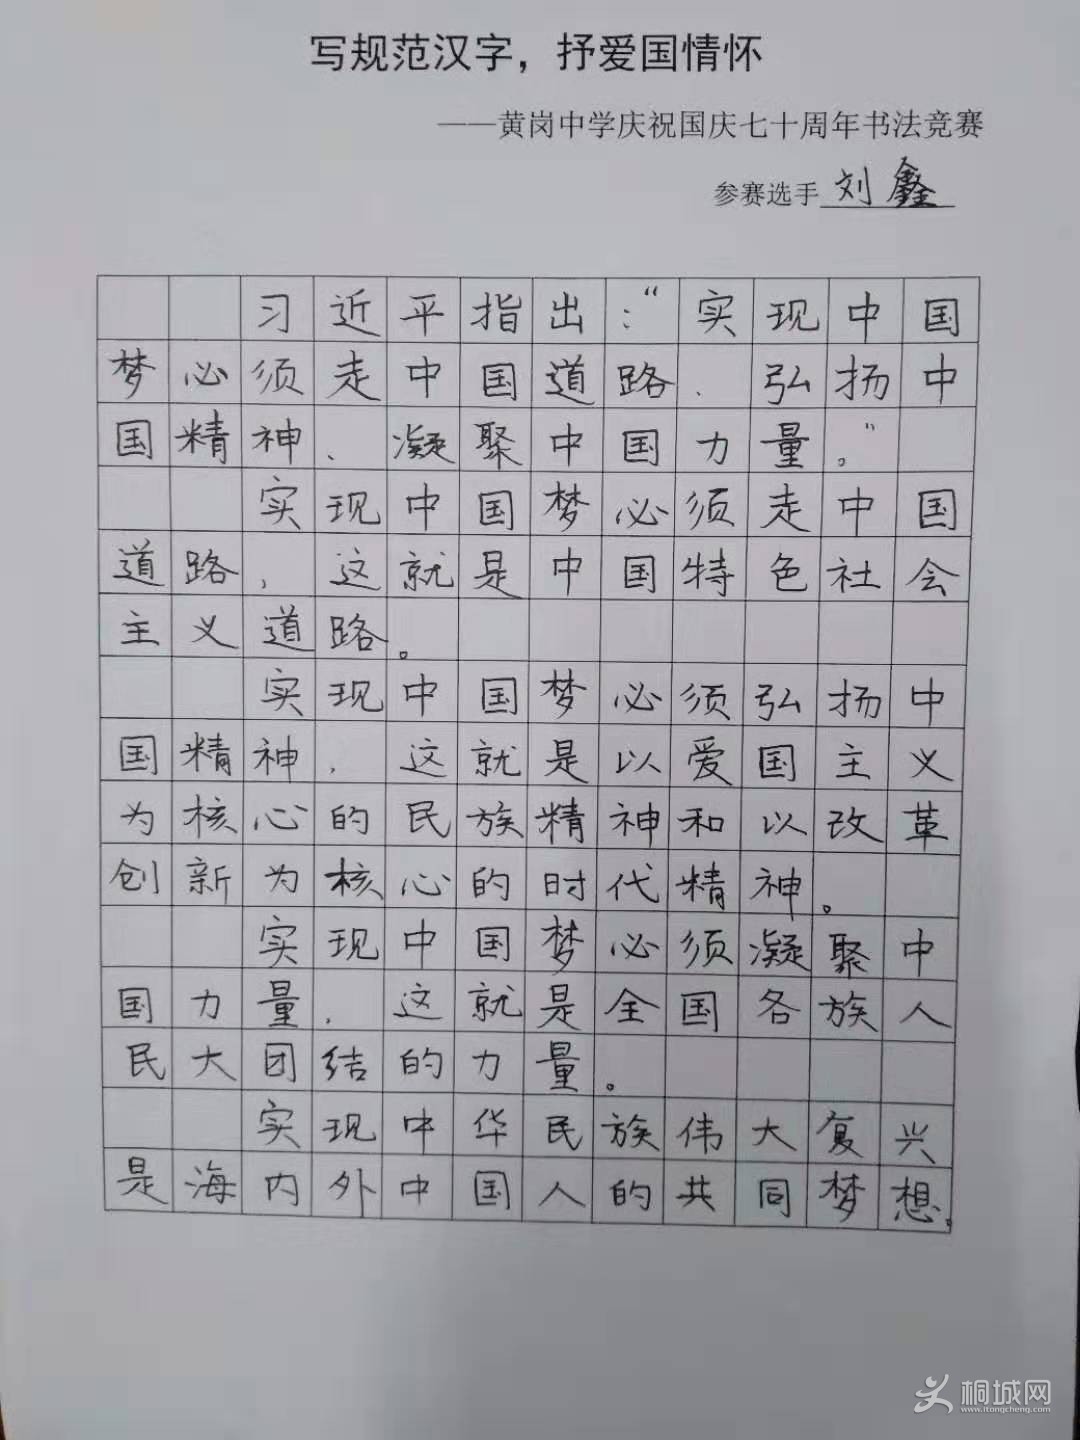 写规范汉字，抒爱国情怀
——黄岗中学庆祝国庆七十周年书法竞赛
参赛选手 刘鑫
习近平指出：“实现中国
梦必须走中国道路、弘扬中
国精神、凝聚中国力量。”
实现中国梦必须走中国
道路，这就是中国特色社会
主义道路。
实现中国梦必须弘扬中
国精神，这就是以爱国主义
为核心的民族精神和以改革
创新为核心的时代精神。
实现中国梦必须凝聚中
国力量，这就是全国各族人
民大团结的力量。
实现中华民族伟大复兴
是海内外中国人的共同梦想。
桐城网
www.itongcheng.com